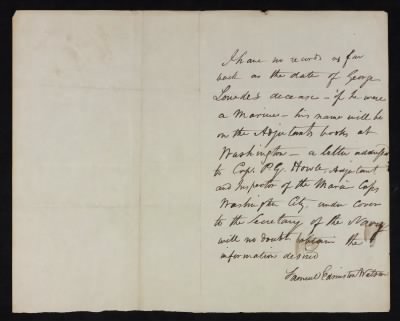 I have no records as far
back as the date of George
decease - if he were
a Marine - his name will be
on the Adjutants books at
Washington - a letter addressed
to Capt P.G. Howle, Adjutant &
and Inspector of the Marine Corps
Washington City, under cover
to the Secretary of the Navy
will no doubt obtain the
information desired
Samuel Watson